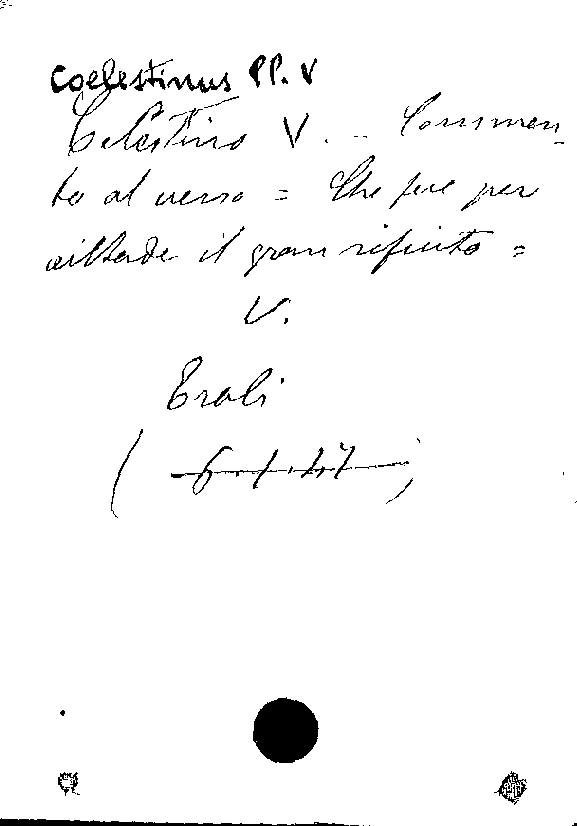 Coelestinus PP. V
Celestino V. - Commen-
to al verso = Che fece per
viltade il gran rifiuto =
V.
Eroli
( 6.1.47 )